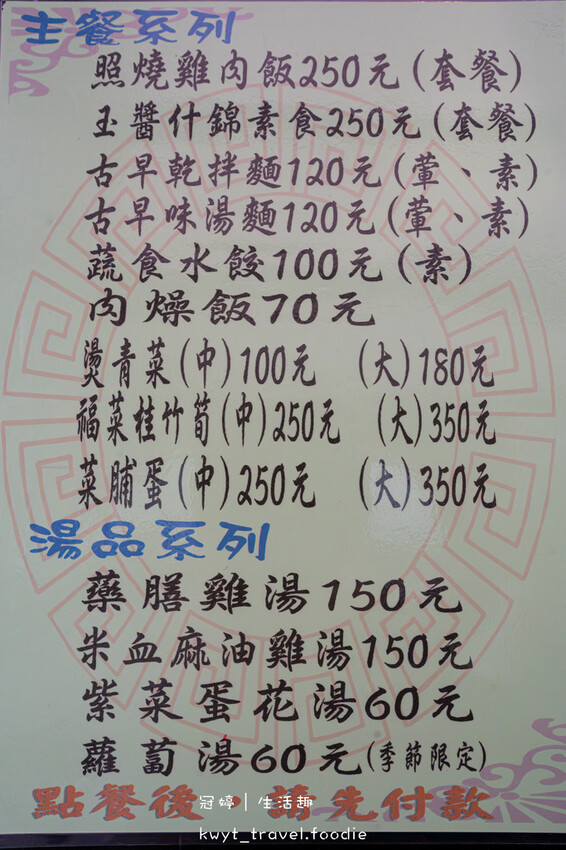 主餐系列
照燒雞肉飯250元(套餐)
玉醬什錦素食250元(套餐)
古早乾拌麵120元(葷、素)
古早味湯麵120元(葷、素)
蔬食水餃100元(素)
肉燥飯70元
燙青菜(中)100元 (大)180元
福菜桂竹筍(中)250元 (大)350元
菜脯蛋(中)250元 (大)350元
湯品系列
藥膳雞湯150元
米血麻油雞湯150元
紫菜蛋花湯60元
蘿蔔湯60元(季節限定)
點餐後 請先付款
冠婷｜生活趣
kwyt_travel.foodie